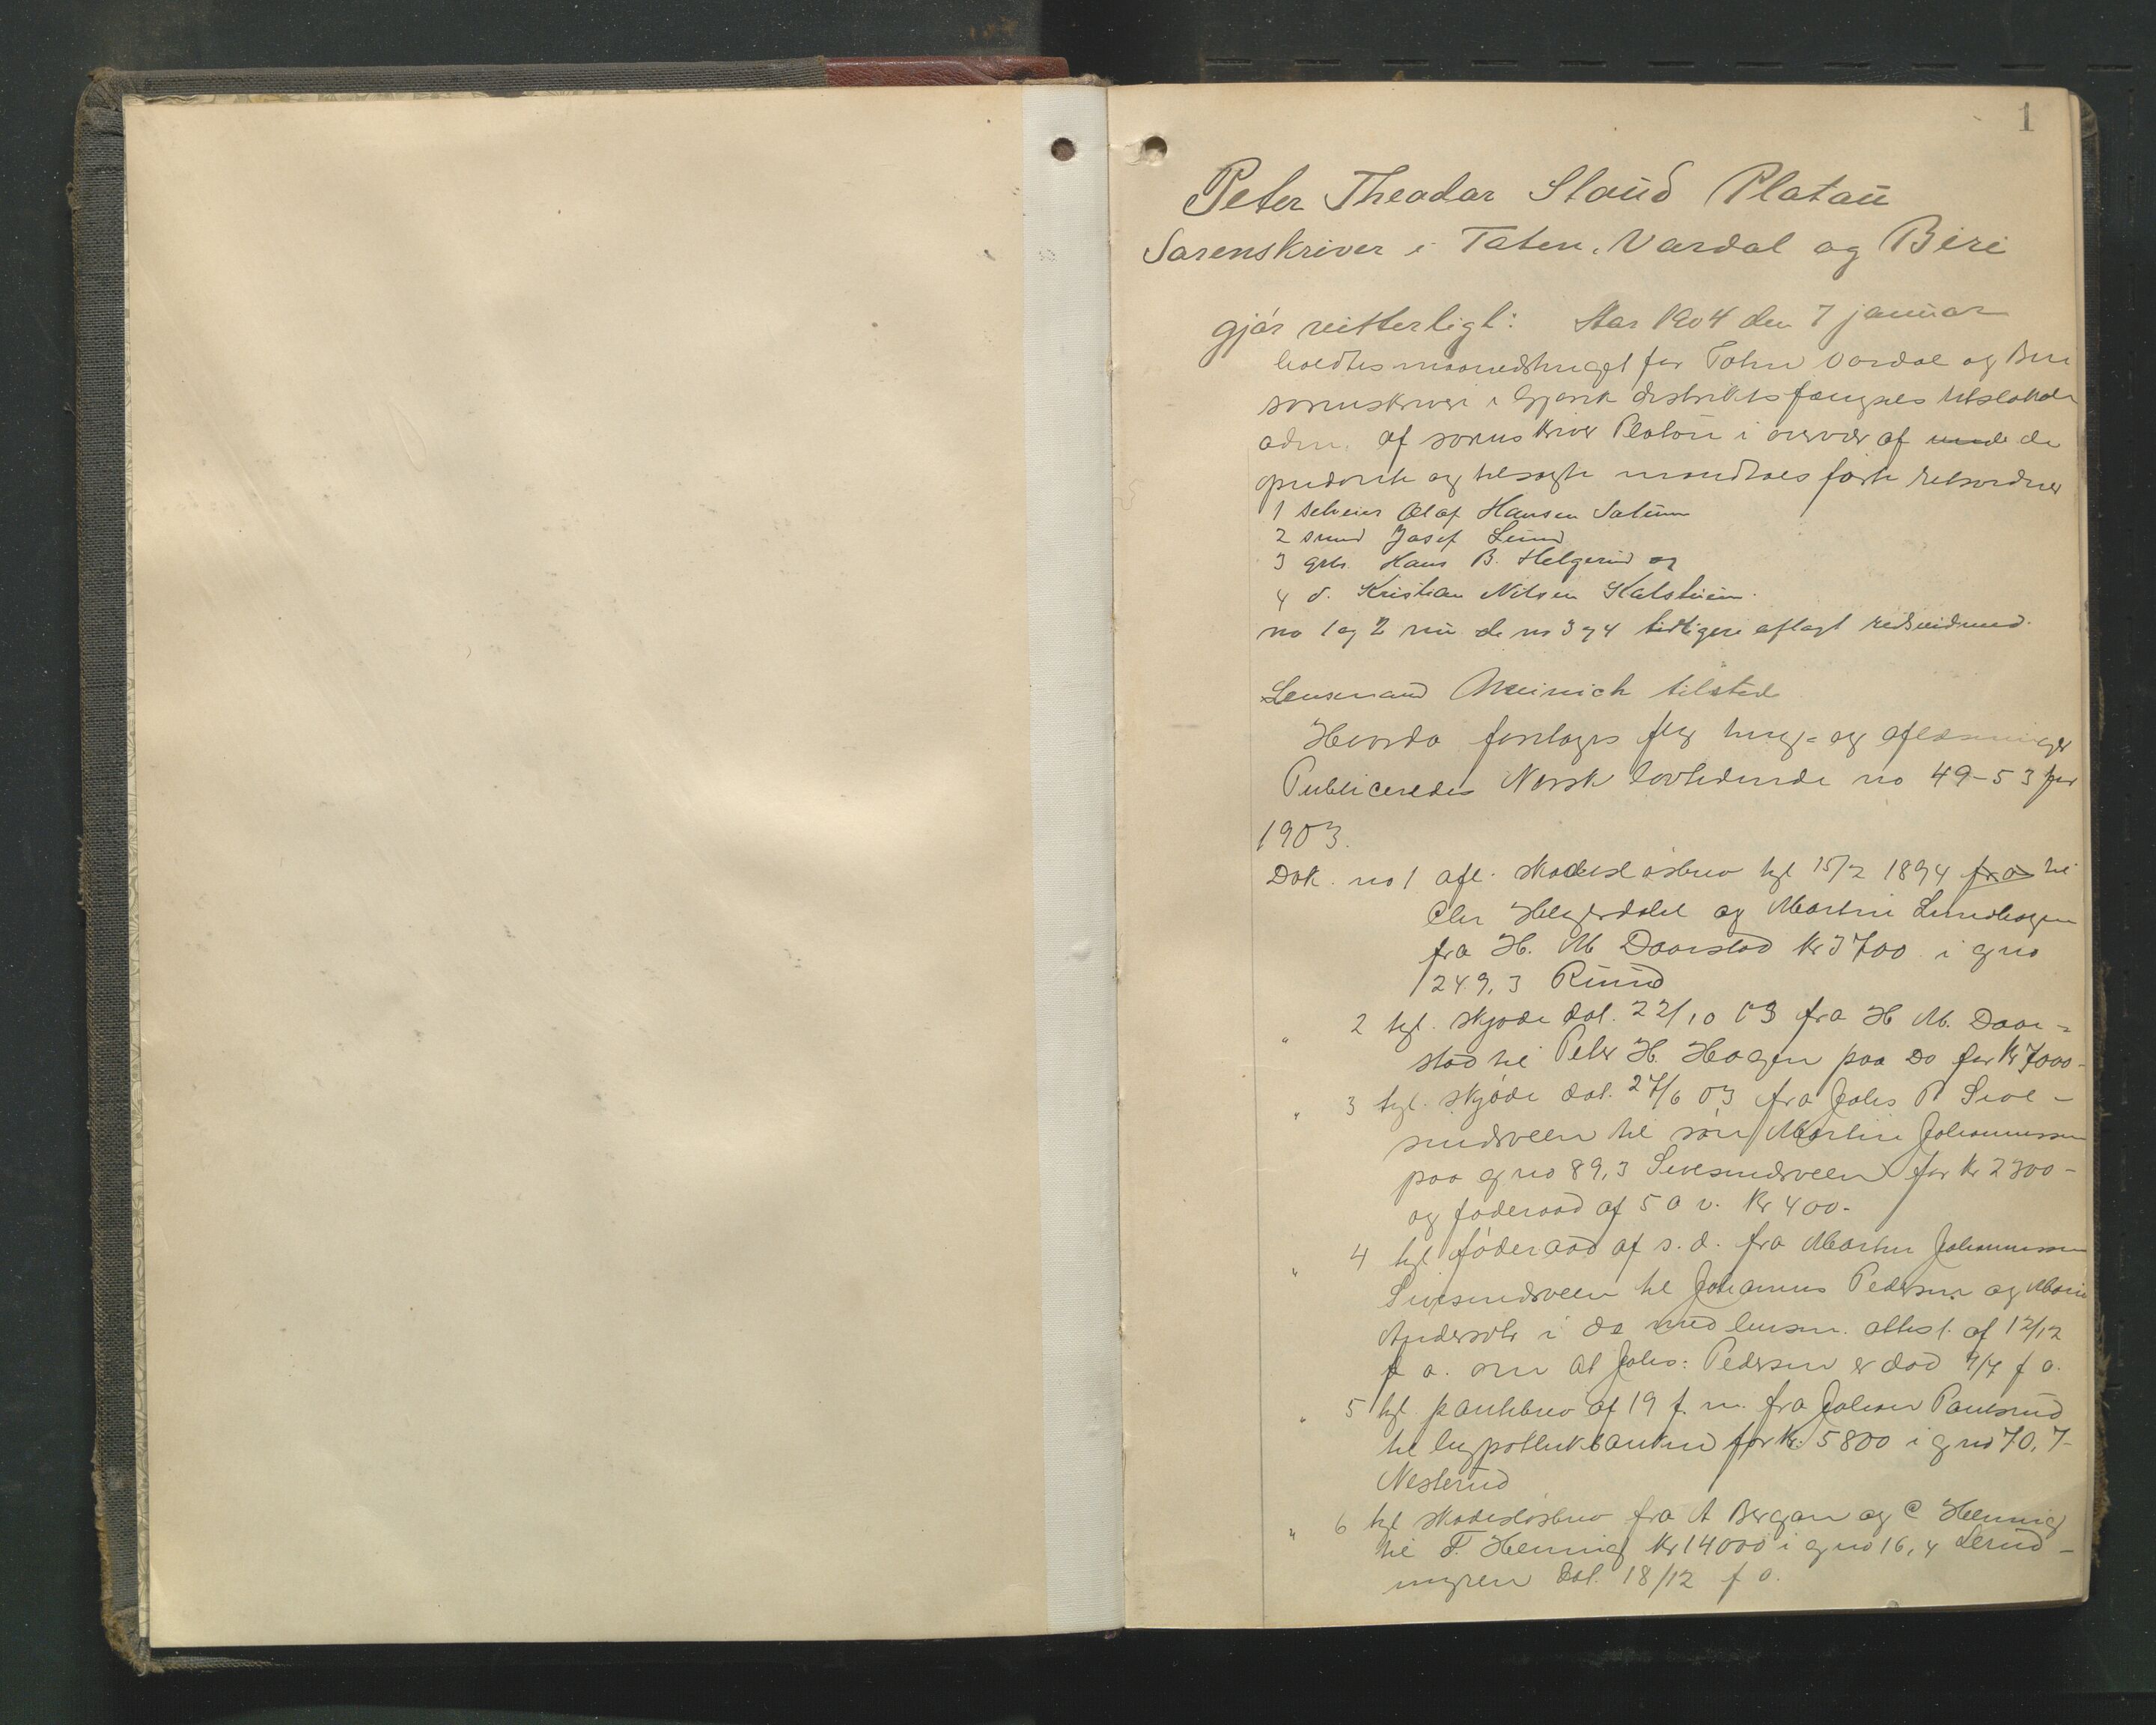 1
Peter Theodor Staud Platou
Sorenskriver i Toten, Vardal og Biri
gjør vitterligt: Aar 1904 den 7 januar
holdtes maanedsthinget for Toten Vardal og Biri
sorenskriveri i Gjøvik distriktsfængsels
adm. af sorenskriver Platou i overvær af de
opnævnte og tilsagte mandtals førte
1 selveier Olaf Hansen
2 smed Josef Lund
3 grbr. Hans B. Helgerud og
4 d. Kristian Nilsen
no 1 og 2 nu de no 3 og 4 tidligere aflagt
Lensmand Meinich tilstede
Hvorda foretoges flg thing- og aflæsninger
Publiceredes Norsk lovtidende no 49-53 for
1903.
Dok. no 1 afl. skadesløsbrev tgl 15/2 1894 fra til
Chr Helgerdalel og Martin Lundhagen
fra H. M Daarstad kr 3700 i gno
249,3 Ruud
" 2 tgl. skjøde dat. 22/10 03 fra H M. Daar-
stad til Peter H. Hagen paa Do for kr 7000-
" 3 tgl. skjøde dat. 27/6 03 fra Johs P Sive-
sindveen til søn Martin Johannessen
paa gno 89,3 Sivesindveen for kr 2300-
og føderaad af 5 a v. kr 400-
" 4 tgl føderaad af s.d. fra Martin Johannessen
Sivesindveen til Johannes Pedersen og Marie
Andersdtr i do med lensm. attest. af 12/12
f a. om at Johs: Pedersen er død f a.
" 5 tgl. pantebrev af 19 f. m. fra Johan Paulsrud
til hypothekbanken for kr. 5800 i gno 70,7
Nesterud
" 6 tgl skadesløsbrev fra A Bergan og C Hennig
til F. Hennig kr 14000 i gno 16,4
dat. 18/12 f a.